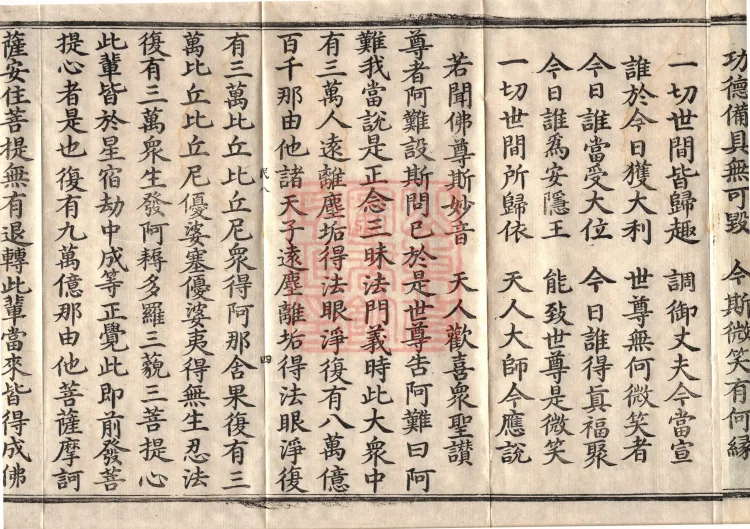 功德備具無可毀　今斯微笑有何緣
一切世間皆歸趣　調御丈夫今當宣
誰於今日獲大利　世尊無何微笑者
今日誰當受大位　今日誰得真福聚
今日誰為安隱王　能致世尊是微笑
一切世間所歸依　天人大師今應說
若聞佛尊斯妙音　天人歡喜衆聖讃
尊者阿難設斯問已於是世尊告阿難曰阿
難我當說是正念三昧法門義時此大衆中
有三萬人遠離塵垢得法眼淨復有八萬億
百千那由他諸天子遠塵離垢得法眼淨復
四
有三萬比丘比丘尼衆得阿那舍果復有三
萬比丘比丘尼優婆塞優婆夷得無生忍法
復有三萬衆生發阿耨多羅三藐三菩提心
此輩皆於星宿劫中成等正覺此即前發菩
提心者是也復有九萬億那由他菩薩摩訶
薩安住菩提無有退轉此輩當來皆得成佛